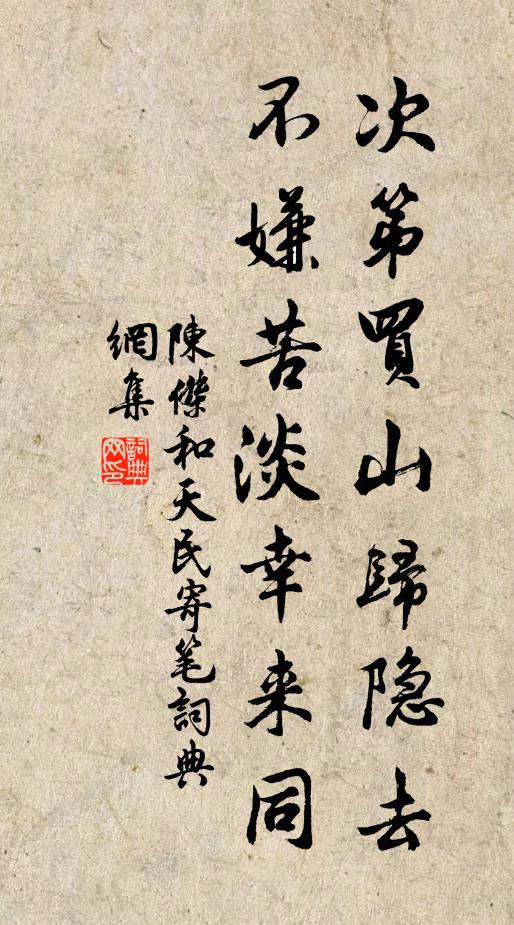 次第買山歸隐去
不嫌苦淡幸来同
陳傑和天民寄笔詞典
網集
詞典
网印